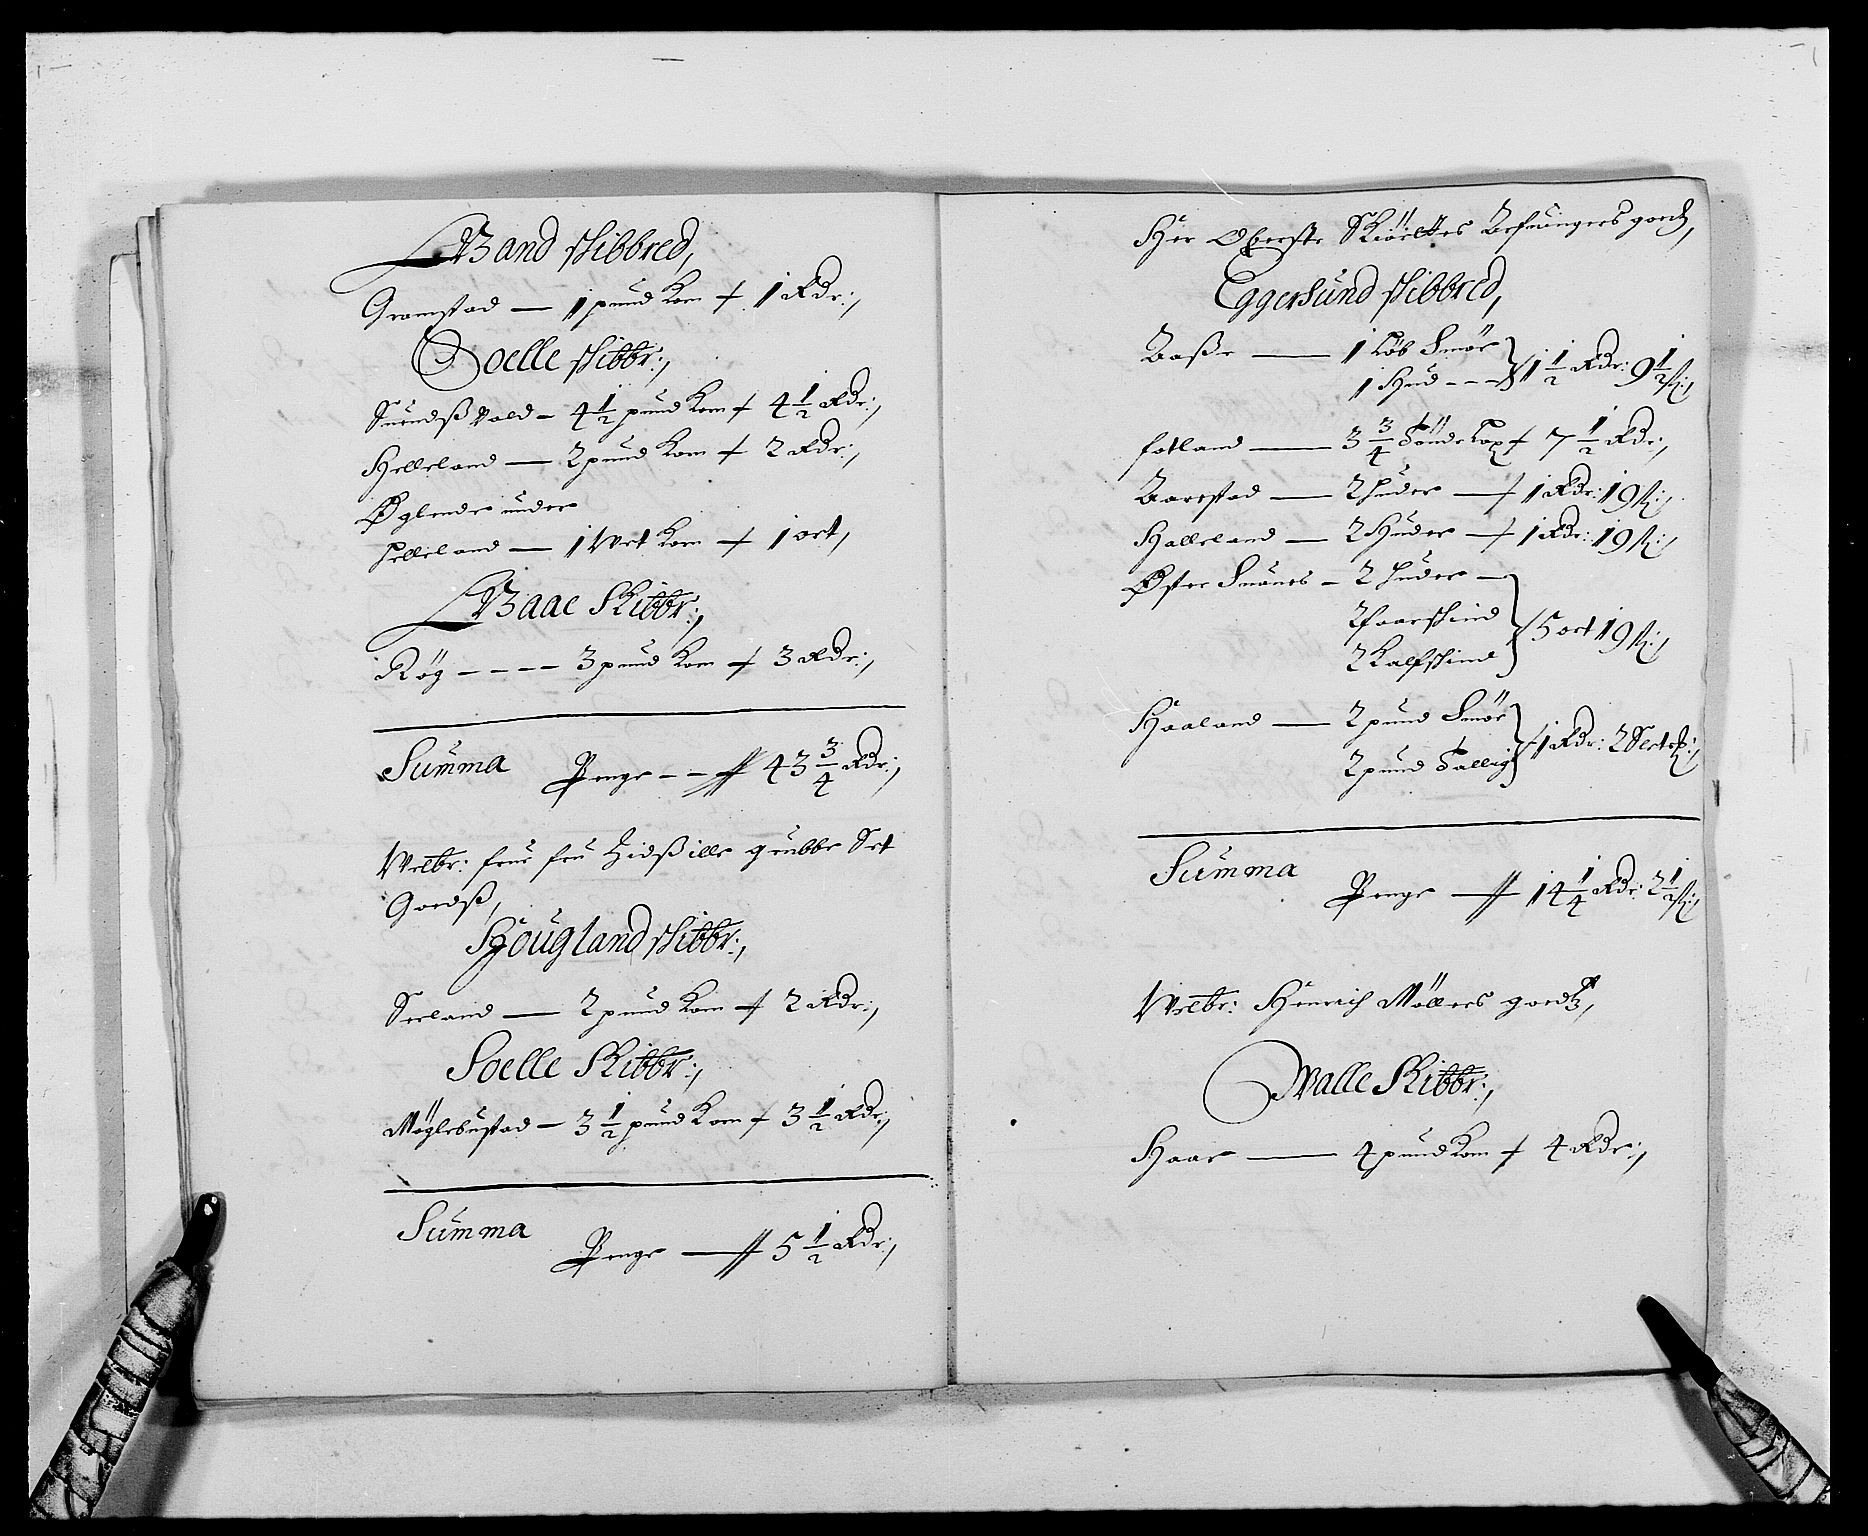 Wand skibbred,
Gramstad — 1 pund Korn + 1 Rdr:,
Soelle skibbr:,
Suindsß Vold – 4 1/2 pund Korn + 4 1/2 Rdr:,
Helleland — 2 pund Korn + 2 Rdr:,
Øglende under
helleland — 1 Wet Korn + 1 ort,
Waae Skibbr:,
Røg - - - - 3 pund Korn + 3 Rdr:,
Summa Penge - - 43 3/4 Rdr:,
Welbr: frue fru grubbe Set
Goedß,
Hougland skibbr:,
Seeland — 2 pund Korn + 2 Rdr:,
Soelle Skibbr:,
Møglebustad — 3 1/2 pund Korn + 3 1/2 Rdr:,
Summa
Penge — 5 1/2 Rdr:,
Her Oberste goedz,
Eggersund skibbred,
Baße — 1 Løb Smør
1 Hud - - - 1 1/2 Rdr: 9 1/2 sk:,
fotland — 3 3/4 Tønde Lax + 7 1/2 Rdr:,
Aarestad — 2 huder + 1 Rdr: 19 sk:,
Halleland — 2 Huder + 1 Rdr: 19 sk:,
Øster Smaues – 2 huder —
2 faarskind 5 ort 19 sk:,
2 Kalfskind
Haaland — 2 pund Smør
2 pund Tallig 1 Rdr: 2 Sletort:,
Summa
Penge — 14 1/4 Rdr: 2 1/2 sk:,
Welbr: Henrich Møllers goedtz,
Walle Skibbr:,
Haar — 4 pund Korn + 4 Rdr:,